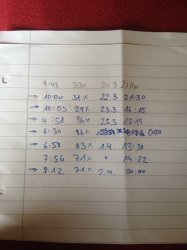 9:48 33% 20.3. 21:00
→ 10:00 31% 22.3 21:30
→ 10:03 29% 23.3. 16:15
→ 4:58 96% 25.3 18:19
→ 6:30 86% 0:00
→ 6:58 83% 1.4. 13:30
7:56 71% " 14:22
→ 8:12 71% 2.4. 00:00